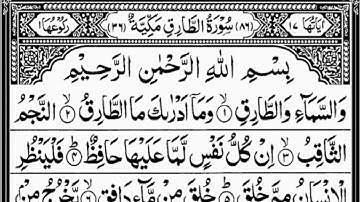 اٰيَاتُهَا ١٧ (٨٦) سُوْرَةُ الطَّارِقِ مَكِّيَّةٌ (٣٦) رُكُوْعُهَا ١
بِسْمِ اللهِ الرَّحْمٰنِ الرَّحِيْمِ
وَالسَّمَآءِ وَالطَّارِقِ ۙ١ وَمَآ اَدْرٰىكَ مَا الطَّارِقُ ۙ٢ النَّجْمُ
الثَّاقِبُ ۙ٣ اِنْ كُلُّ نَفْسٍ لَّمَّا عَلَيْهَا حَافِظٌ ؕ٤ فَلْيَنْظُرِ
الْاِنْسَانُ مِمَّ خُلِقَ ؕ٥ خُلِقَ مِنْ مَّآءٍ دَافِقٍ ۙ٦ يَّخْرُجُ مِنْۢ